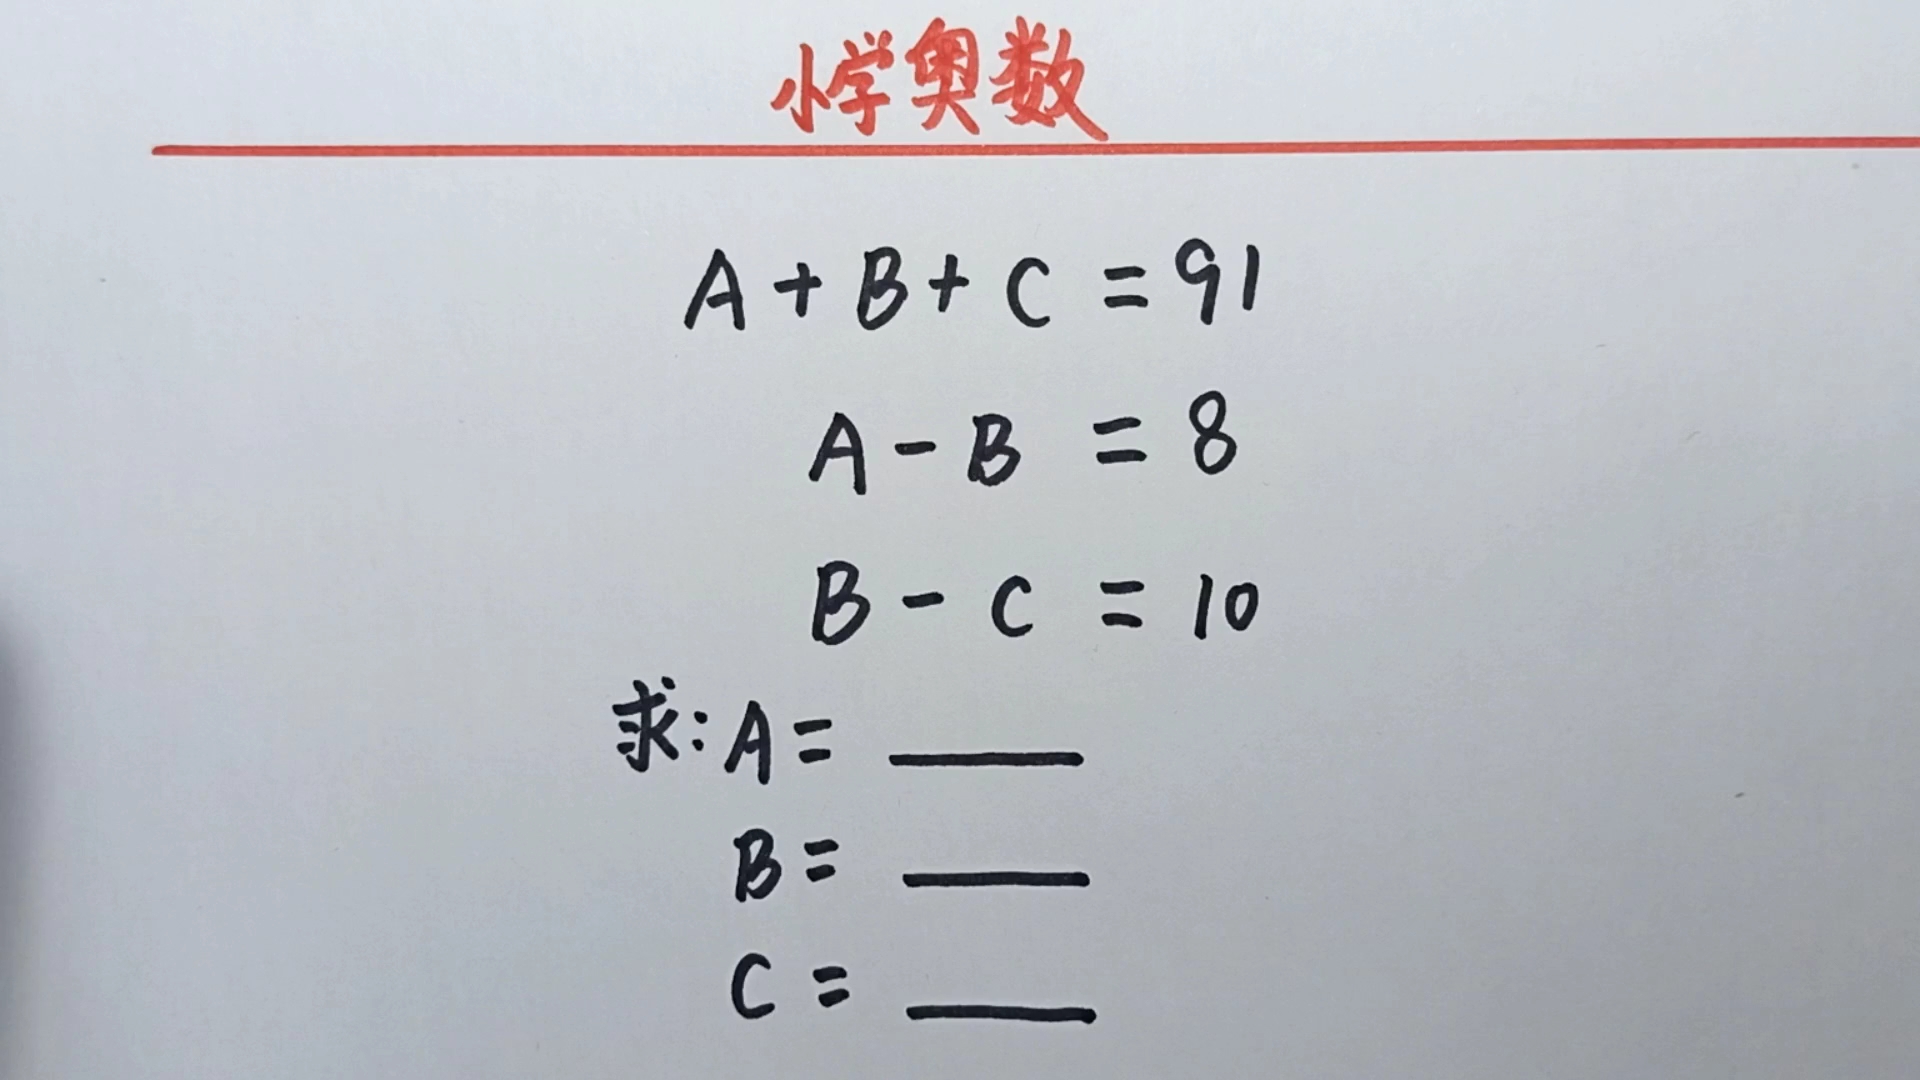 小学奥数
A+B+C=91
A-B=8
B-C=10
求:A=____
B=____
C=____